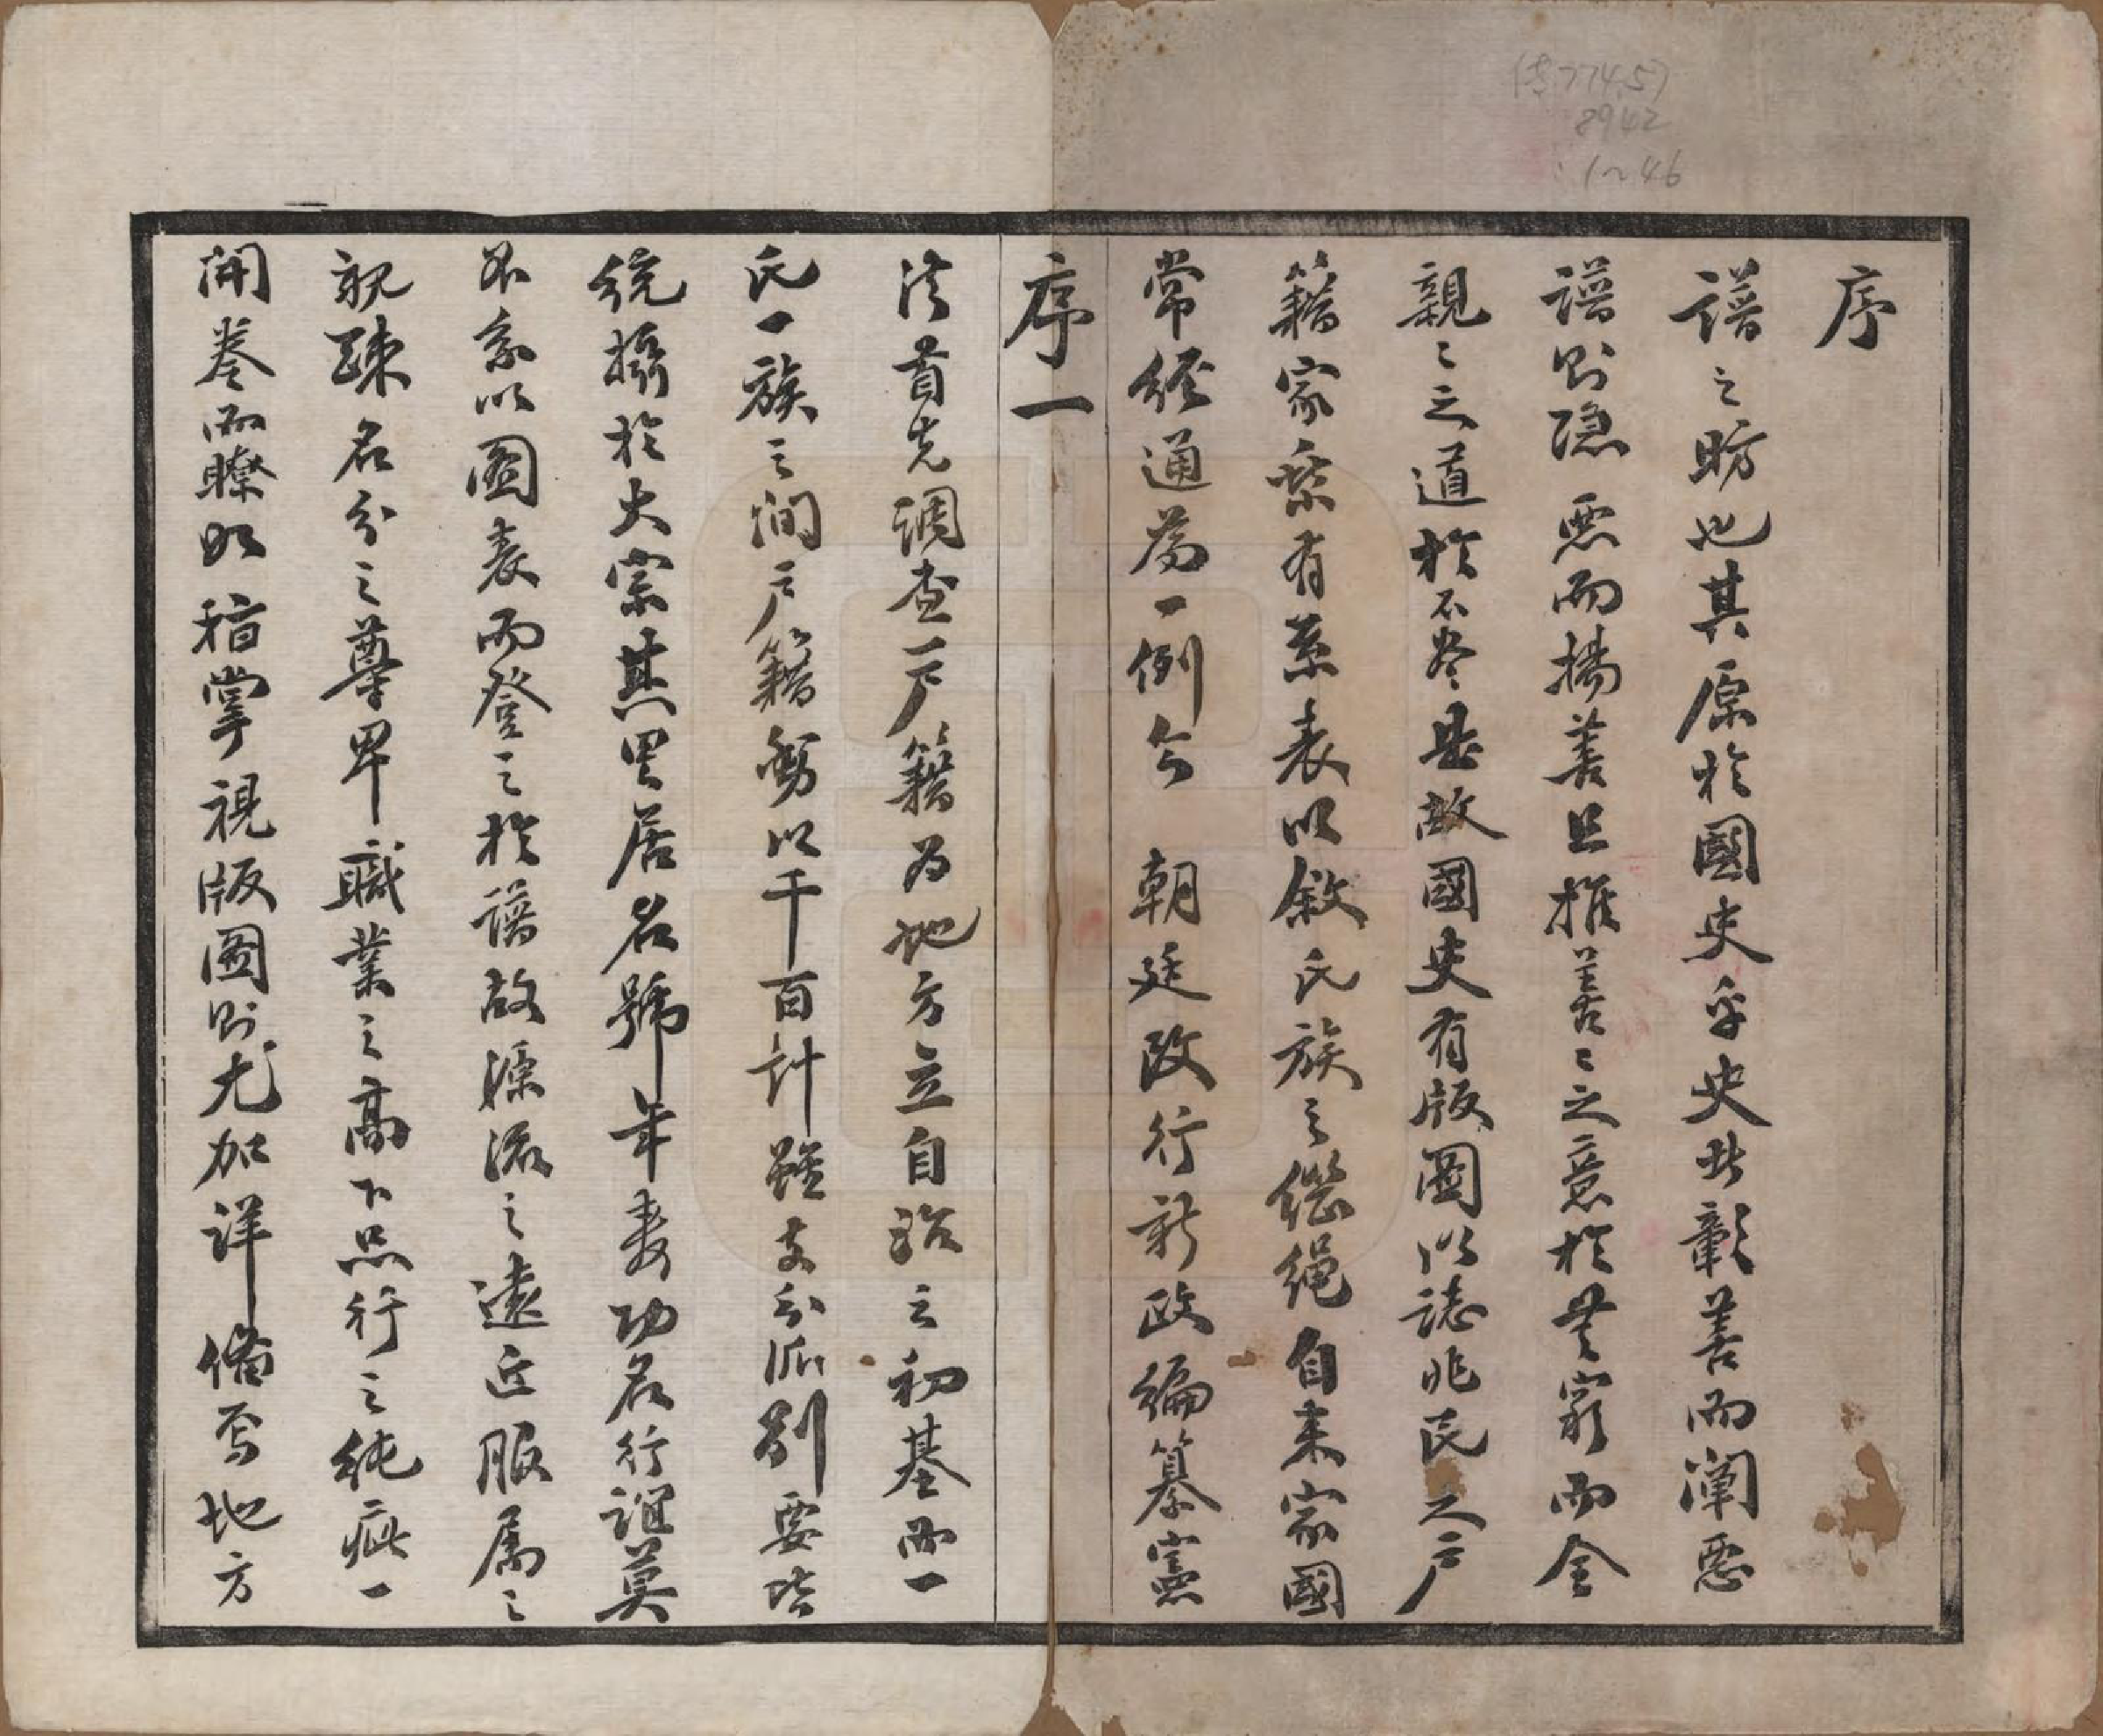 (善774.57
8942
:1~46
序
譜之昉也其原於國史乎史此彰善而闡惡
譜則隱惡而揚善且推善〻之意於無窮而全
親〻之道於不容是故國史有版圖以誌兆民之戶
籍家乘有系表以敘氏族之繼繩自来家國
常經通為一例今　朝廷改行新政編纂憲
序一
法首先調查戶籍为地方立自治之初基而一
氏一族之间戶籍動以千百計雖支分派別要皆
統攝於大宗其里居名號年妻功名行誼莫
不系以圖表而登之於譜故源流之遠近服属之
親疎名分之尊卑職業之高下品行之純疵一
開卷而瞭如指掌視版圖則尤加詳俻焉地方